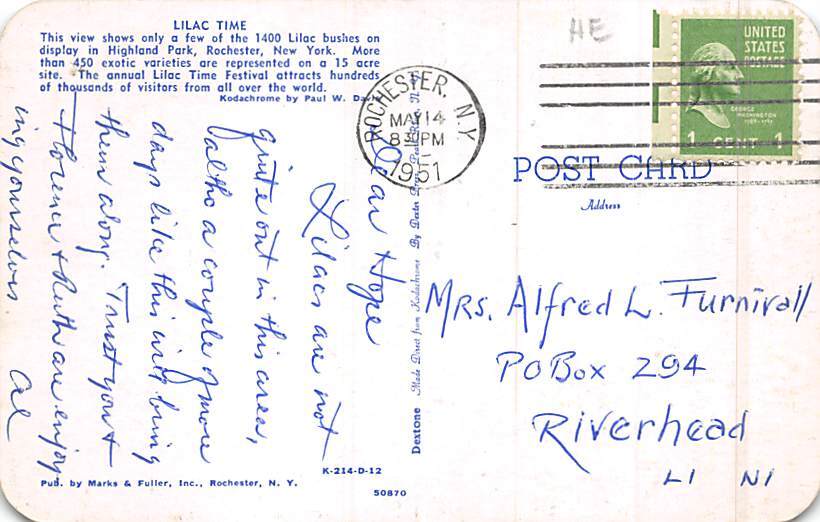 LILAC TIME
This view shows only a few of the 1400 Lilac bushes on
display in Highland Park, Rochester, New York. More
than 450 exotic varieties are represented on a 15 acre
site. The annual Lilac Time Festival attracts hundreds
of thousands of visitors from all over the world.
Kodachrome by Paul W. Davis
Dear Hope
Lilacs are not
quite out in this area,
altho a couple of more
days like this will bring
them along. Trust you +
Florence + Ruth are enjoy
ing yourselves.
Al
K-214-D-12
Pub. by Marks & Fuller, Inc., Rochester, N. Y.
50870
Dextone Made Direct from Kodachrome By Dexter Press, Pearl River, N. Y.
HE
ROCHESTER, N.Y.
MAY 14
830 PM
1951
UNITED
STATES
POSTAGE
GEORGE
WASHINGTON
1789-1797
1 CENT 1
POST CARD
Address
MRS. Alfred L. Furnivall
PO Box 294
Riverhead
LI NY